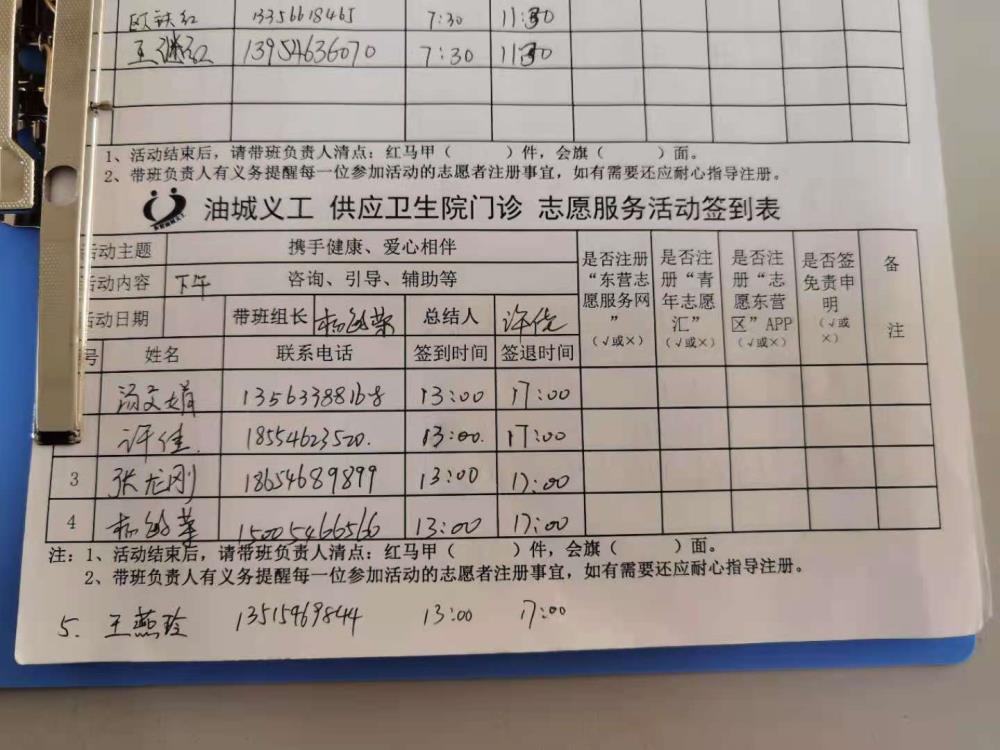 欧铁红 13356618465 7:30 11:30
王 红 13954636070 7:30 11:30
1、活动结束后，请带班负责人清点：红马甲（ ）件，会旗（ ）面。
2、带班负责人有义务提醒每一位参加活动的志愿者注册事宜，如有需要还应耐心指导注册。
油城义工 供应卫生院门诊 志愿服务活动签到表
活动主题 携手健康、爱心相伴 是否注册“东营志愿服务网”（√或×） 是否注册“青年志愿汇”（√或×） 是否注册“志愿东营区”APP（√或×） 是否签免责申明（√或×） 备注
活动内容 下午 咨询、引导、辅助等
活动日期 带班组长 总结人 许佳
号 姓名 联系电话 签到时间 签退时间
汤文娟 13563388168 13:00 17:00
许佳 18554623520. 13:00. 17:00
3 张龙刚 18654689899 13:00 17:00
4 15005466566 13:00 17:00
注：1、活动结束后，请带班负责人清点：红马甲（ ）件，会旗（ ）面。
2、带班负责人有义务提醒每一位参加活动的志愿者注册事宜，如有需要还应耐心指导注册。
5. 王燕玲 13515469844 13:00 17:00